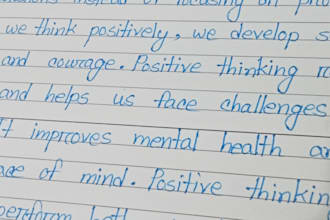 instead of focusing on
we think positively, we develop s
and courage. Positive thinking
and helps us face challenges
It improves mental health a
ace of mind. Positive thinkin
perform